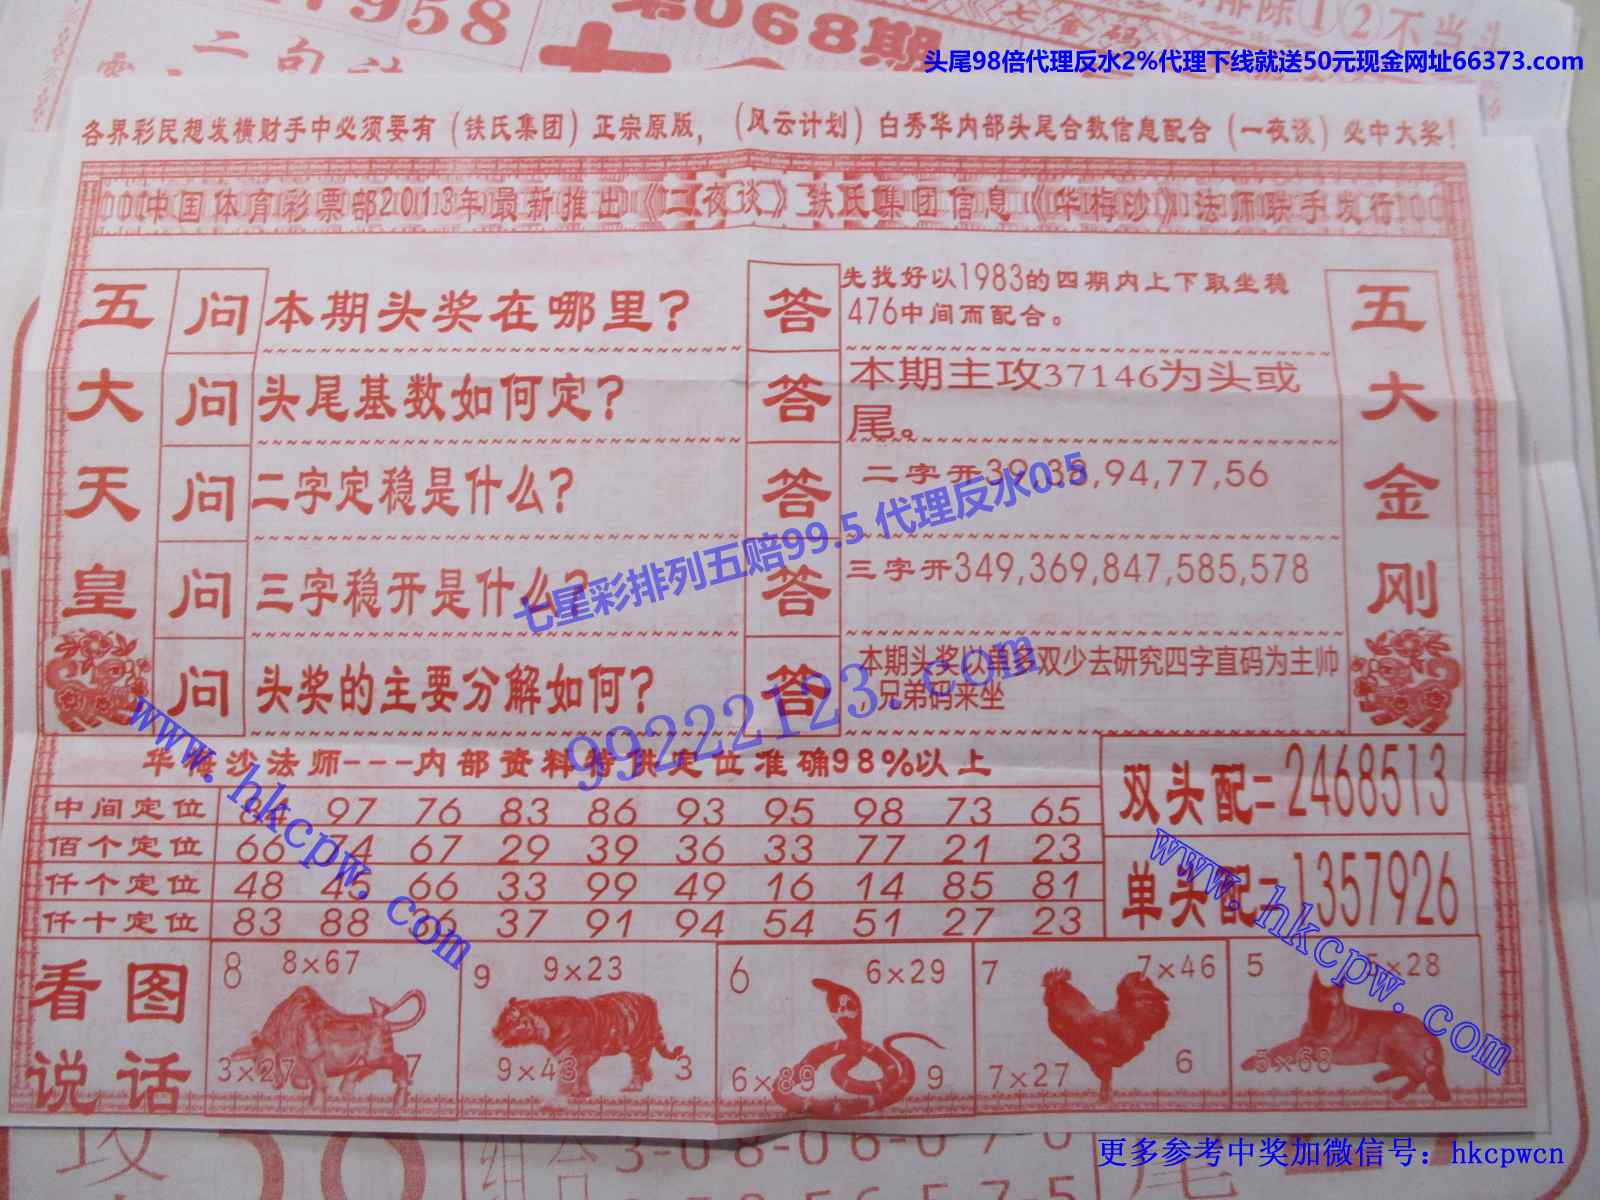 958
第068期
二句
七金码
排除①②不当头
头尾98倍代理反水2%代理下线就送50元现金网址66373.com
各界彩民想发横财手中必须要有（铁氏集团）正宗原版，（风云计划）白秀华内部头尾合数信息配合（一夜谈）必中大奖！
中国体育彩票部2013年最新推出《二夜谈》铁氏集团信息《华梅沙》法师联手发行
五大天皇
问 本期头奖在哪里？
答 先找好以1983的四期内上下取坐稳
476中间而配合。
问 头尾基数如何定？
答 本期主攻37146为头或
尾。
问 二字定稳是什么？
答 二字开39,38,94,77,56
问 三字稳开是什么？
答 三字开349,369,847,585,578
问 头奖的主要分解如何？
答 本期头奖以单多双少去研究四字直码为主帅
，兄弟码来坐
五大金刚
七星彩排列五赔99.5 代理反水0.5
99222123.com
www.hkcpw.com
华梅沙法师---内部资料特供定位准确98%以上
中间定位 97 76 83 86 93 95 98 73 65
佰个定位 66 74 67 29 39 36 33 77 21 23
仟个定位 48 66 33 99 49 16 14 85 81
仟十定位 83 88 37 91 94 54 51 27 23
双头配二 2468513
单头配二 1357926
www.hkcpw.com
看图
说话
8 8×67
3×27 7
9 9×23
9×43 3
6 6×29
6×89 9
7 7×46
7×27 6
5 5×28
5×68
更多参考中奖加微信号：hkcpwcn
攻
组合 3-08-06-07-0
尾